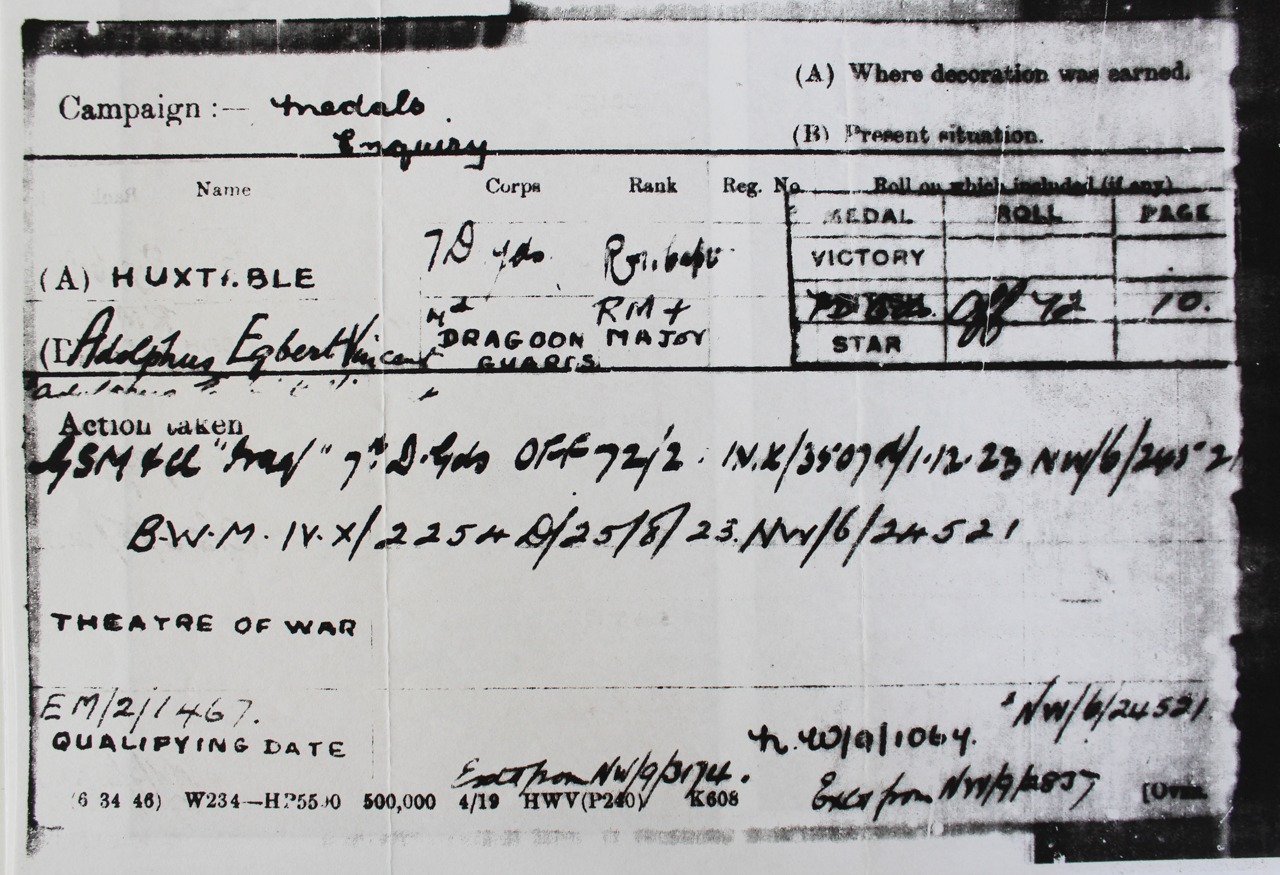 (A) Where decoration was earned.
Campaign :— Medals
(B) Present situation.
Enquiry
Name Corps Rank Reg. No. Roll on which included (if any)
MEDAL ROLL PAGE
7 D Gds
VICTORY
(A) HUXTABLE
RM + Off 72 10.
Adolphus Egbert Vincent DRAGOON MAJOR
GUARDS STAR
Action taken
GSM & Cl "Iraq" 7th D. Gds OFF 72/2. IV.X/3507 D/1.12.23 NW/6/24521
B.W.M. IV.X/2254 D/25/8/23. NW/6/24521
THEATRE OF WAR
EM/2/1467. NW/6/24521
QUALIFYING DATE
from NW/9/3174.
(6 34 46) W234—HP5590 500,000 4/19 HWV(P240) K608 from [Over.